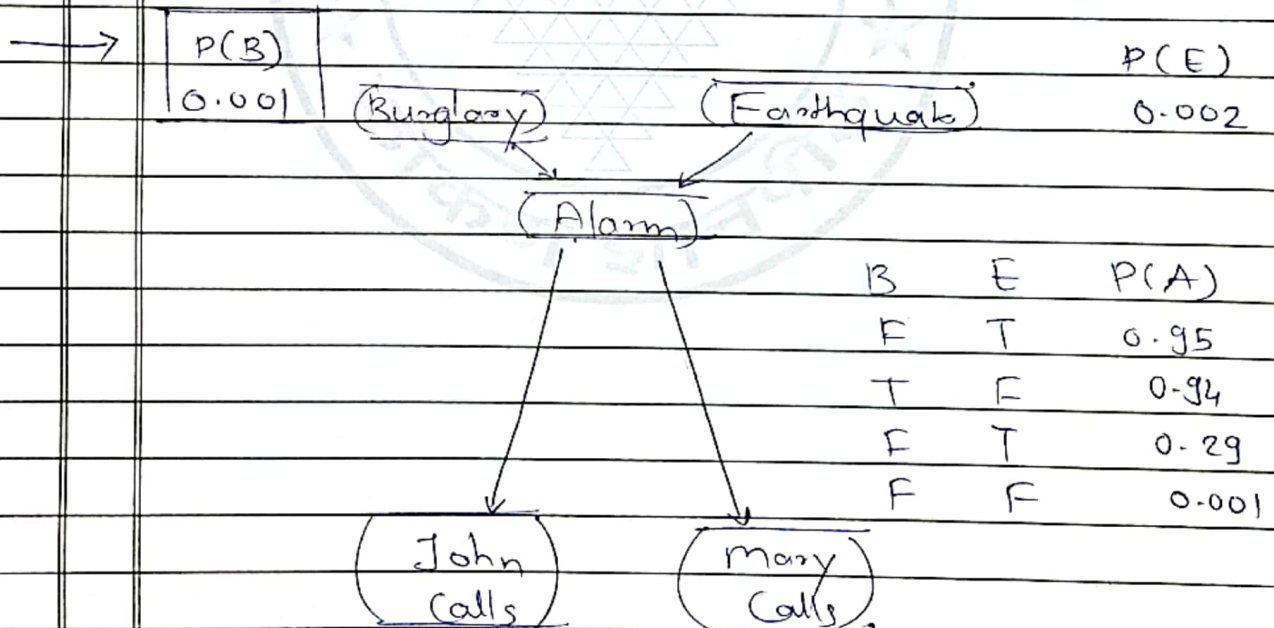 P(B)
0.001
P(E)
0.002
Burglary
Earthquake
Alarm
B E P(A)
F T 0.95
T F 0.94
F T 0.29
F F 0.001
John
Calls
Mary
Calls